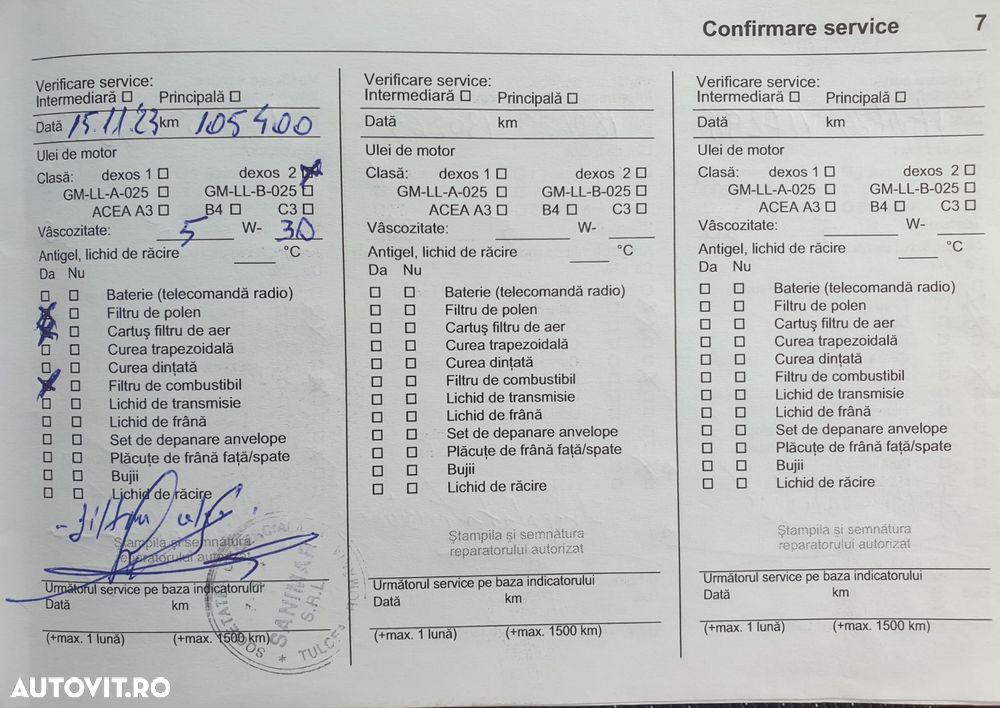 Confirmare service 7
Verificare service:
Intermediară Principală
Dată 15.11.23 km 105400
Ulei de motor
Clasă: dexos 1 dexos 2
GM-LL-A-025 GM-LL-B-025
ACEA A3 B4 C3
Vâscozitate: 5 W- 30
Antigel, lichid de răcire °C
Da Nu
Baterie (telecomandă radio)
Filtru de polen
Cartuş filtru de aer
Curea trapezoidală
Curea dinţată
Filtru de combustibil
Lichid de transmisie
Lichid de frână
Set de depanare anvelope
Plăcuţe de frână faţă/spate
Bujii
Lichid de răcire
Ştampila şi semnătura
reparatorului autorizat
SANIMAR
S.R.L.
SOCIETATEA
TULCEA
ROMANIA
Următorul service pe baza indicatorului
Dată km
(+max. 1 lună) (+max. 1500 km)
Verificare service:
Intermediară Principală
Dată km
Ulei de motor
Clasă: dexos 1 dexos 2
GM-LL-A-025 GM-LL-B-025
ACEA A3 B4 C3
Vâscozitate: W-
Antigel, lichid de răcire °C
Da Nu
Baterie (telecomandă radio)
Filtru de polen
Cartuş filtru de aer
Curea trapezoidală
Curea dinţată
Filtru de combustibil
Lichid de transmisie
Lichid de frână
Set de depanare anvelope
Plăcuţe de frână faţă/spate
Bujii
Lichid de răcire
Ştampila şi semnătura
reparatorului autorizat
Următorul service pe baza indicatorului
Dată km
(+max. 1 lună) (+max. 1500 km)
Verificare service:
Intermediară Principală
Dată km
Ulei de motor
Clasă: dexos 1 dexos 2
GM-LL-A-025 GM-LL-B-025
ACEA A3 B4 C3
Vâscozitate: W-
Antigel, lichid de răcire °C
Da Nu
Baterie (telecomandă radio)
Filtru de polen
Cartuş filtru de aer
Curea trapezoidală
Curea dinţată
Filtru de combustibil
Lichid de transmisie
Lichid de frână
Set de depanare anvelope
Plăcuţe de frână faţă/spate
Bujii
Lichid de răcire
Ştampila şi semnătura
reparatorului autorizat
Următorul service pe baza indicatorului
Dată km
(+max. 1 lună) (+max. 1500 km)
AUTOVIT.RO